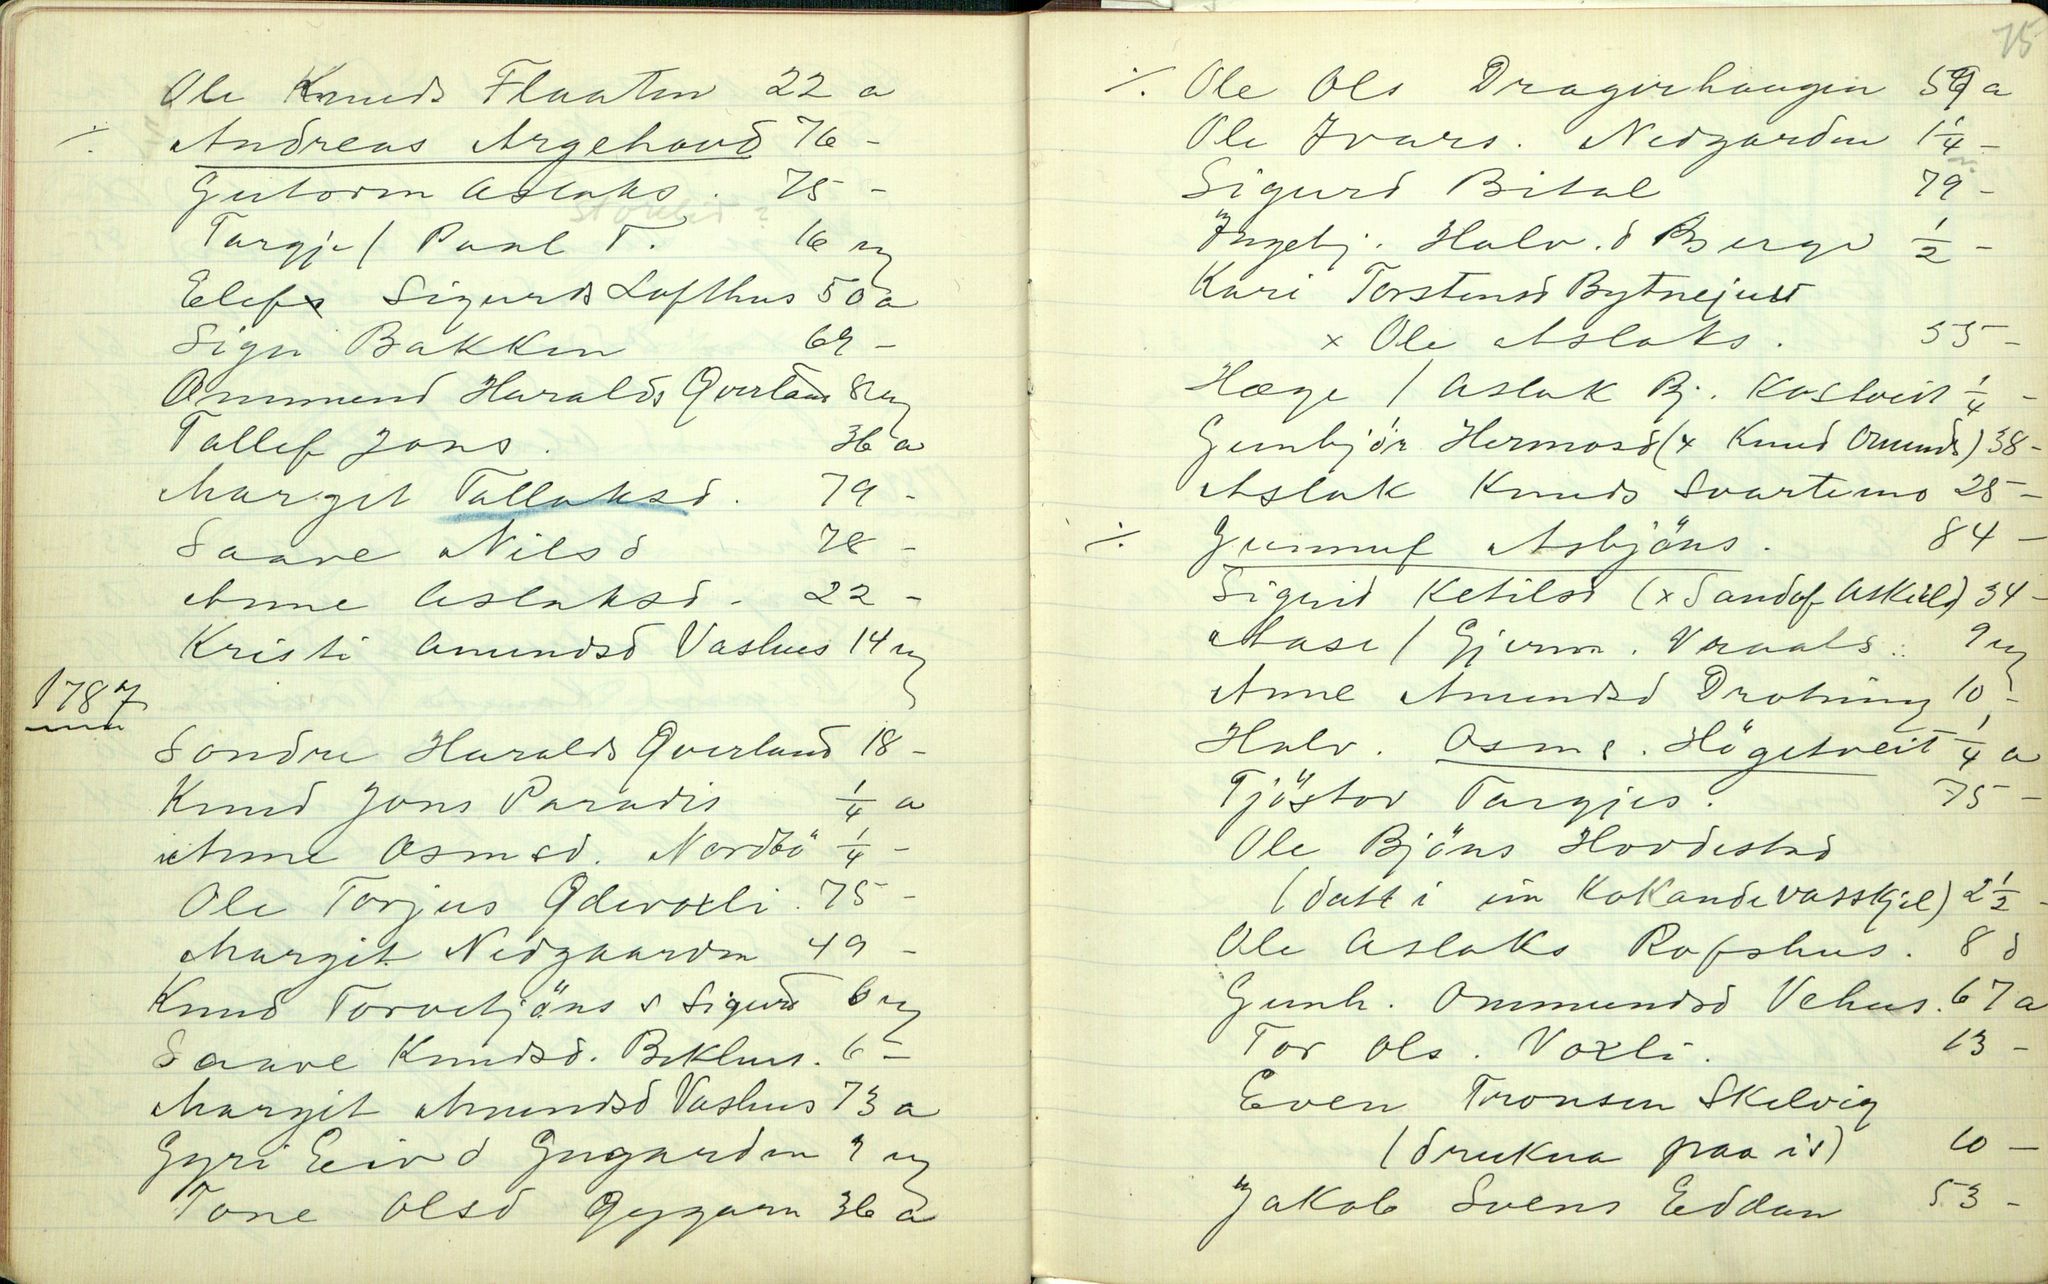 Ole Knuds Flaaten 22 a
·/. Andreas Argehovd 76 -
Gutorm Aslaks. 75 -
Targje / Paal T. 16 u
Elef Sigurds Lofthus 50 a
Sign Bakken 69 -
Ommund Haralds Qverland 8 u
Tallef Jons. 36 a
Margit Tallaksd. 79 -
Saave Nilsd 78 -
Anne Aslaksd - 22 -
Kristi Amundsd Vashus 14 u
1787
Sondre Haralds Qverland 18 -
Knud Jons Paradis 1/4 a
Anne Osmsd. Nordbö 1/4 -
Ole Torjus Ødevoxli. 75 -
Margit Nedgaarden 49 -
Knud Torvebjöns s Sigurd 6 u
Saave Knudsd. Bekhus. 6 -
Margit Amundsd Vashus 73 a
Gyri Eivd Gugarden 9 u
Tone Olsd 36 a
75
·/. Ole Ols Dragerhaugen 59 a
Ole Ivars. Nedgarden 1 1/4 -
Sigurd Bital 79 -
Ingebj. Halv.d Berge 1/2 -
Kari Torstensd Bytnejust
x Ole Aslaks. 55 -
Hæge / Aslak Bj. Kostveit 1/4 -
Gunbjör Hermosd (x Knud Omunds) 38 -
Aslak Knuds Svartemo 25 -
·/. Gunnuf Asbjöns. 84 -
Sigrid Ketilsd (x Sandof Askild) 34 -
Aase / Gjerm. Vraals. 9 u
Anne Amundsd Drotning 10 -
Halv. Osms. Högetveit 1/4 a
Tjöstov Targjes. 75 -
Ole Bjöns Hovdestad
(datt i ein kokande vasskjel) 2 1/2 -
Ole Aslaks Rofshus. 8 d
Gunh. Ommundsd Vehus. 67 a
Tor Ols. Voxli. 13 -
Even Tronsen Skelvig
(drukna paa is) 10 -
Jakob Svens Eddan 53 -